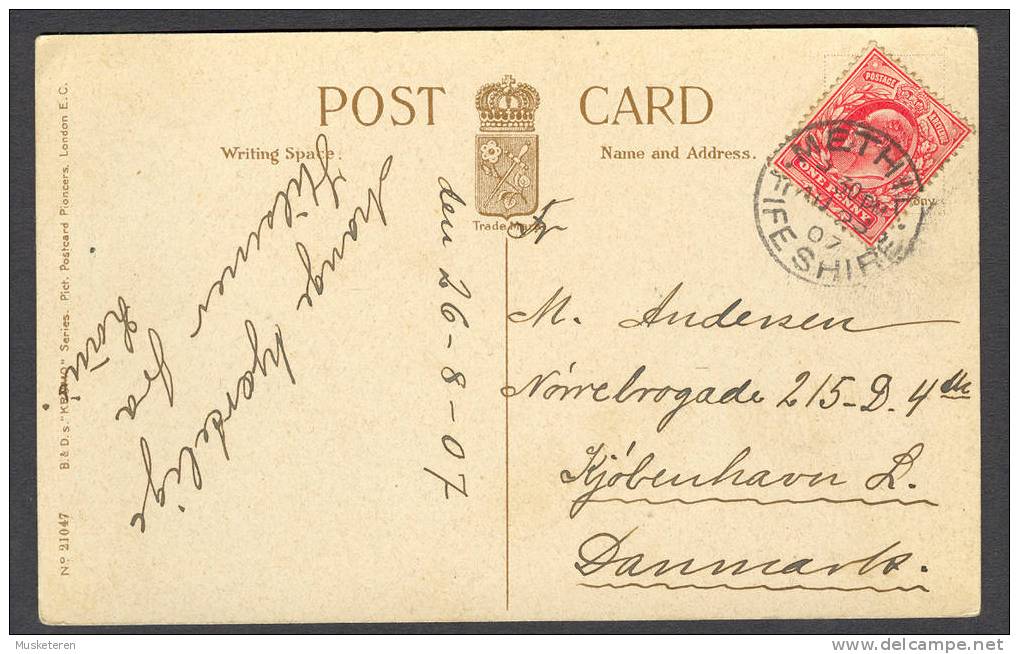 POST CARD
Writing Space.
Name and Address.
Trade Mark
POSTAGE
ONE PENNY
METHIL
30 PM
AU 23
07
FIFESHIRE
Mange hjærdelige
Hilsner
fra
den 26-8-07
Fr.
M. Andersen
Nörrebrogade 215-D. 4de
Kjöbenhavn L.
Danmark.
No 21047 B. & D.s. "KROMO" Series. Pict. Postcard Pioneers, London E.C.
Musketeren
www.delcampe.net